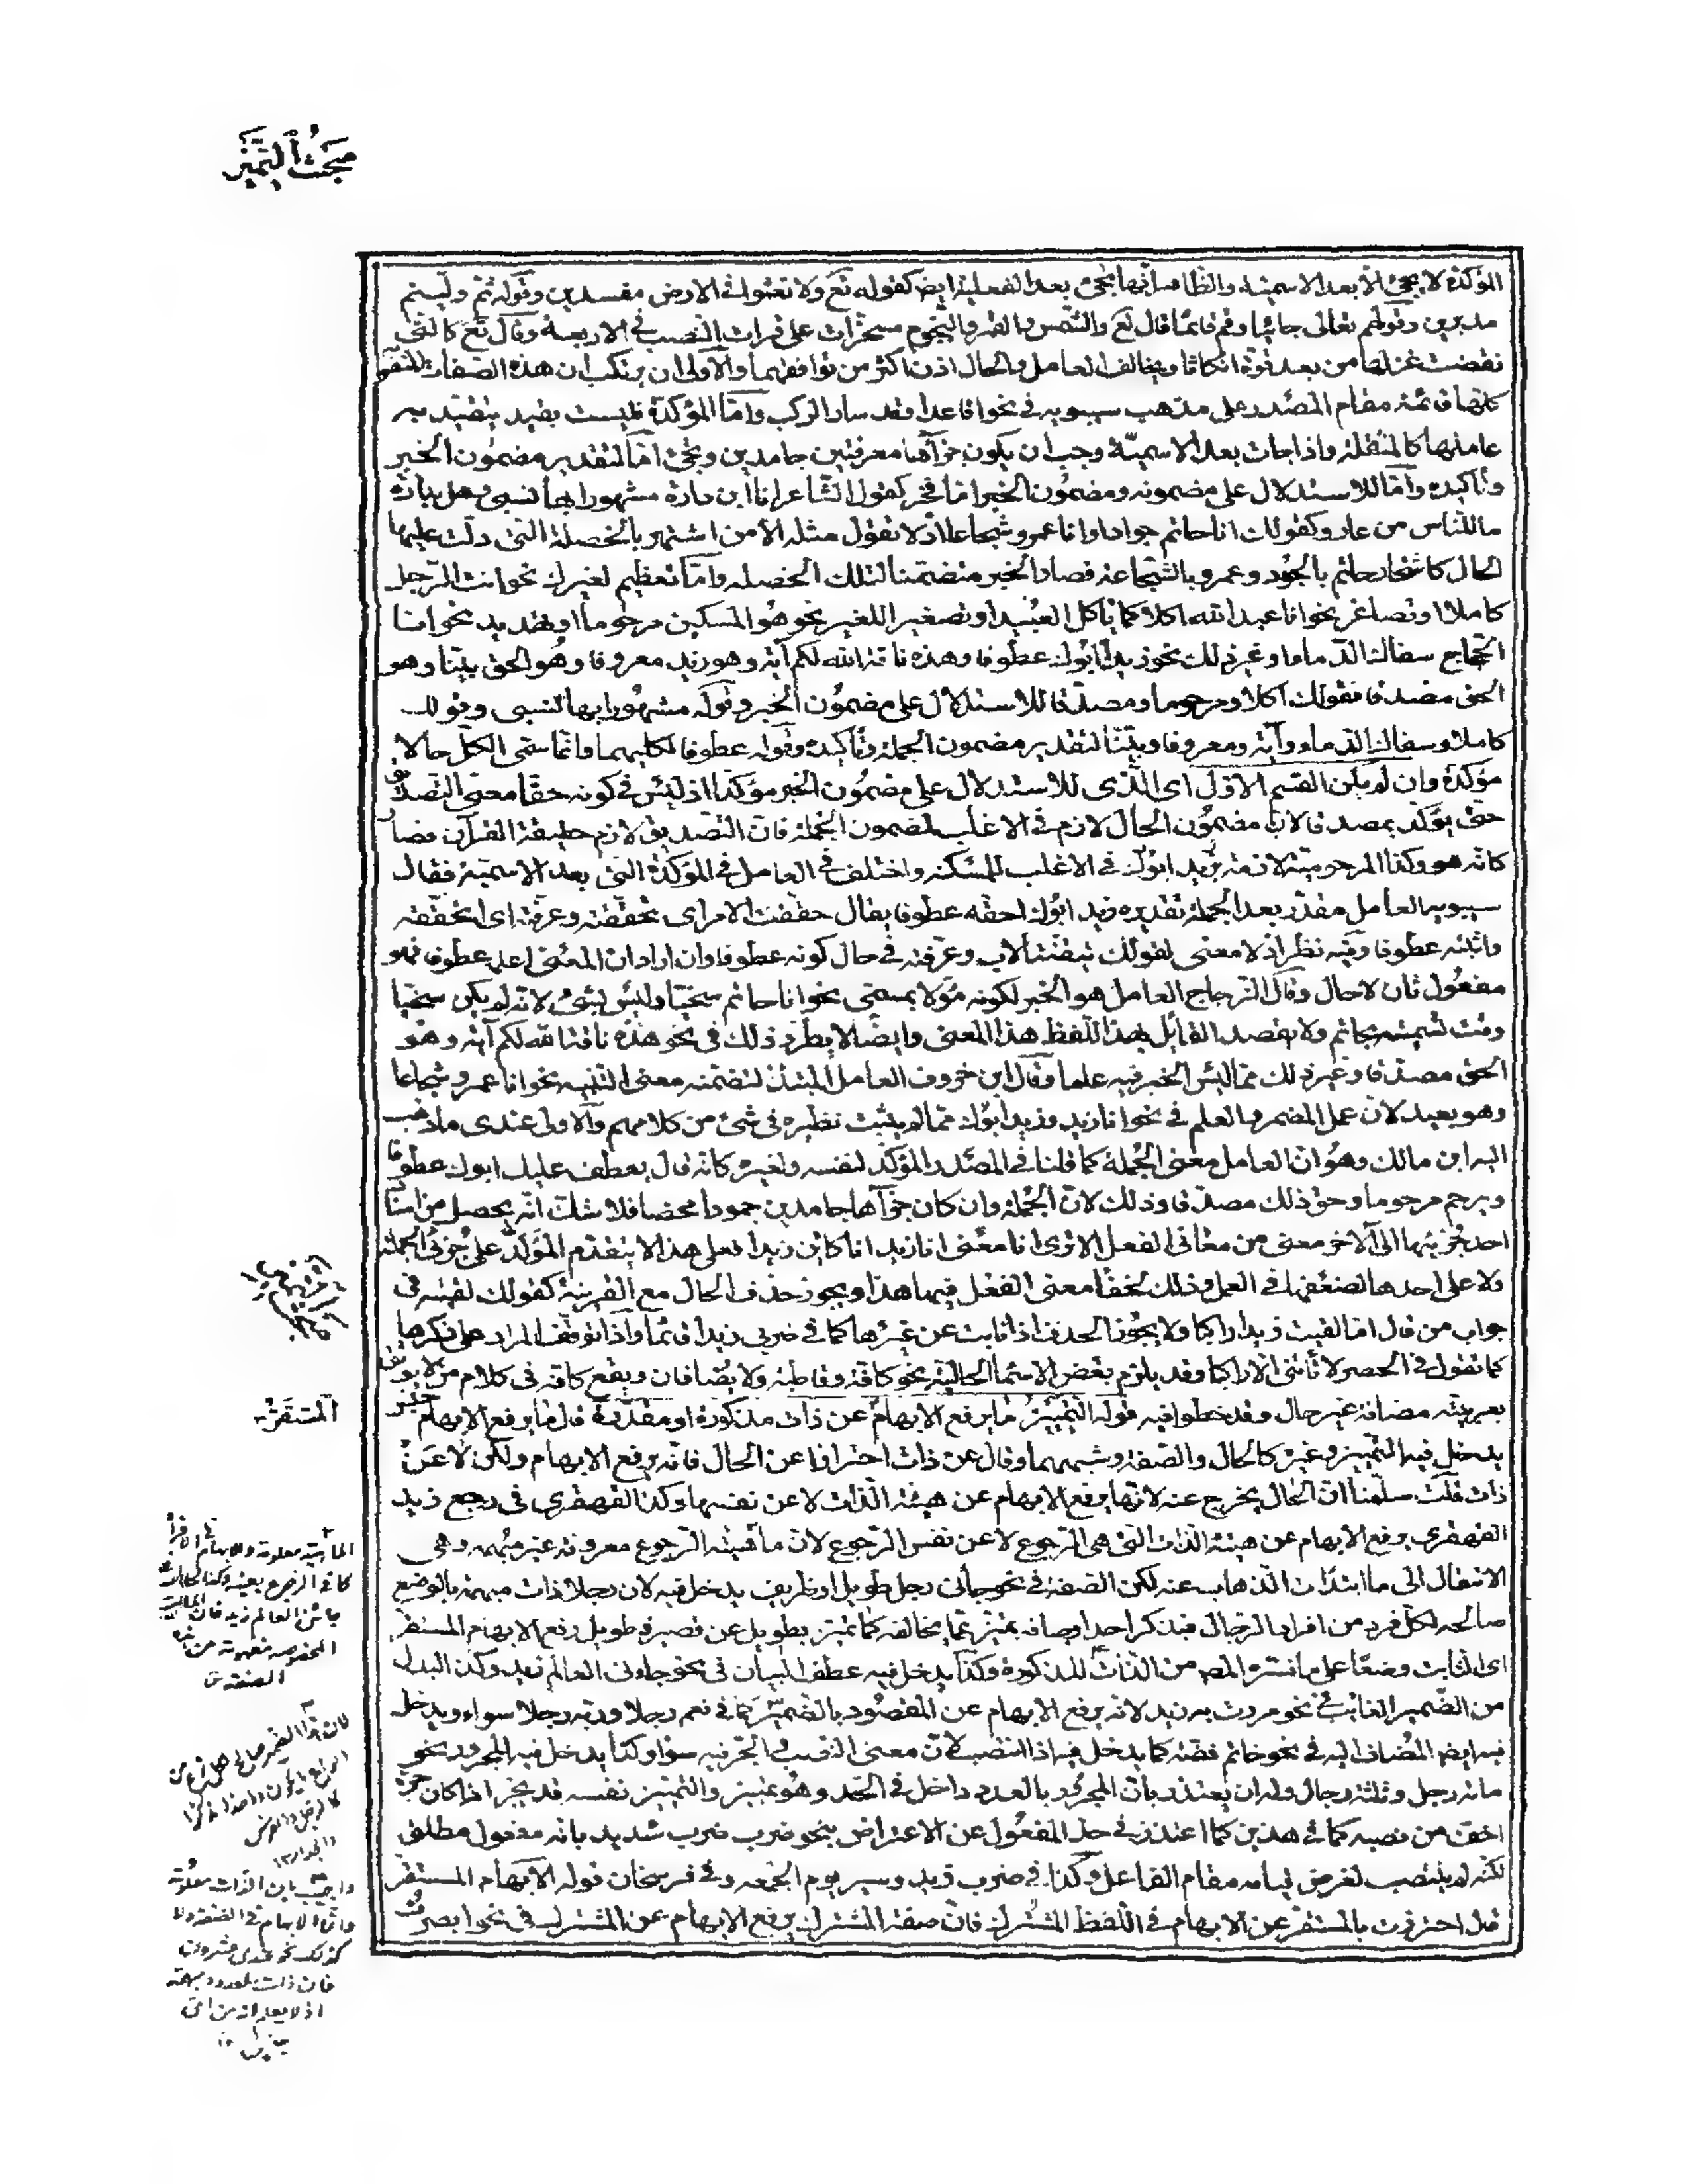 مبحث التمیز
المؤكدة لا يجئ الا بعد الاسمية والظاهر انها تجئ بعد الفعلية ايض كقوله تع ولا تعثوا فى الارض مفسدين وقوله ثم وليتم
مدبرين وقولهم تعالى جائيا وقم قائما وقال تع والشمس والقمر والنجوم مسخرات على قراءت النصب فى الاربعة وقال تع كالتى
نقضت غزلها من بعد قوة انكاثا ويخالف العامل والحال اذن اكثر من توافقهما والاولى ان يرتكب ان هذه الصفات
كلها قائمة مقام المصدر على مذهب سيبويه فى نحو اقاعدا وقد سار الركب واما المؤكدة فليست بقيد يتقيد به
عاملها كالمنتقلة واذا جاءت بعد الاسمية وجب ان يكون جزآها معرفتين جامدين وتجئ اما لتقدير مضمون الخبر
وتاكيده واما للاستدلال على مضمونه ومضمون الخبر اما فخر كقول الشاعر انا ابن دارة مشهورا بها نسبى وهل بدارة
ياللناس من عار وكقولك انا حاتم جوادا وانا عمرو شجاعا اذ لا تقول مثله الا من اشتهر بالخصلة التى دلت عليها
الحال كاشتهار حاتم بالجود وعمرو بالشجاعة فصار الخبر متضمنا لتلك الخصلة واما تعظيم لغيرك نحو انت الرجل
كاملا او تصاغر نحو انا عبد الله اكلا كما ياكل العبيد او تصغير للغير نحو هو المسكين مرحوما او تهديد نحو انا
الحجاج سفاك الدماء او غير ذلك نحو زيد ابوك عطوفا وهذه ناقة الله لكم آية وهو زيد معروفا وهو الحق بينا وهو
الحق مصدقا فقولك اكلا ومرحوما ومصدقا للاستدلال على مضمون الخبر وقوله مشهورا بها نسبى وقولك
كاملا وسفاك الدماء وآية ومعروفا وبينا لتقدير مضمون الجملة وتاكيده وقوله عطوفا لكليهما وانما سمى الكل حالا
مؤكدة وان لم يكن القسم الاول اى الذى للاستدلال على مضمون الخبر مؤكدا اذ ليس فى كونه حقا معنى التصديق
حتى يؤكد بمصدقا لان مضمون الحال لازم فى الاغلب لمضمون الجملة فان التصديق لازم حقيقة القرآن فصار
كانه هو وكذا المرحومية لازمة فى الاغلب للمسكنة واختلف فى العامل فى المؤكدة التى بعد الاسمية فقال
سيبويه العامل مقدر بعد الجملة تقديره زيد ابوك احقه عطوفا يقال حققت الامر اى تحققته وعرفته اى اتحققه
واثبته عطوفا وفيه نظر اذ لا معنى لقولك تيقنت الاب وعرفته فى حال كونه عطوفا وان اراد ان المعنى اعلمه عطوفا فهو
مفعول ثان لا حال وقال الزجاج العامل هو الخبر لكونه مؤلا بمسمى نحو انا حاتم سخيا وليس بشئ لانه لم يكن سخيا
وقت تسميته بحاتم ولا يقصد القائل بهذا اللفظ هذا المعنى وايضا لا يطرد ذلك فى نحو هذه ناقة الله لكم آية وهو
الحق مصدقا وغير ذلك مما ليس الخبر فيه علما وقال ابن خروف العامل المبتدأ لتضمنه معنى التنبيه نحو انا عمرو شجاعا
وهو بعيد لان عمل المضمر والعلم فى نحو انا زيد وزيد ابوك مما لم يثبت نظيره فى شئ من كلامهم والاولى عندى ما ذهب
اليه ابن مالك وهو ان العامل معنى الجملة كما قلنا فى المصدر المؤكد لنفسه ولغيره كانه قال يعطف عليك ابوك عطوفا
ويرحم مرحوما وحق ذلك مصدقا وذلك لان الجملة وان كان جزآها جامدين جمودا محضا فلا شك انه يحصل من اسناد
احد جزئيها الى الآخر معنى من معانى الفعل الا ترى انا معنى انا زيد انا كائن زيدا فعلى هذا لا يتقدم المؤكد على جزئى الجملة
ولا على احدهما لضعفها فى العمل وذلك لخفاء معنى الفعل فيها هذا ويجوز حذف الحال مع القرينة كقولك لقيته فى
جواب من قال اما لقيت زيدا راكبا ولا يجوز الحذف اذا نابت عن غيرها كما فى ضربى زيدا قائما واذا توقف المراد على ذكرها
كما تقول فى الحصر لا تأتنى الا راكبا وقد يلزم بعض الاسماء الحالية نحو كافة وقاطبة ولا يضافان ويقع كافة فى كلام من لا يوثق
بعربيته مضافة غير حال وقد خطوا فيه قوله التمييز ما يرفع الابهام عن ذات مذكورة او مقدرة قال ما يرفع الابهام جنس
يدخل فيه التمييز وغيره كالحال والصفة وشبههما وقال عن ذات احترازا عن الحال فانه يرفع الابهام ولكن لا عن
ذات قلت سلمنا ان الحال يخرج عنه لانها يرفع الابهام عن هيئة الذات لا عن نفسها وكذا القهقرى فى رجع زيد
القهقرى يرفع الابهام عن هيئة الذات التى هى الرجوع لا عن نفس الرجوع لان ماهية الرجوع معروفة غير مبهمة وهى
الانتقال الى ما ابتدات الذهاب عنه لكن الصفة فى نحو جاءنى رجل طويل او ظريف يدخل فيه لان رجلا ذات مبهمة بالوضع
صالحة لكل فرد من افراد الرجال فبذكر احد اوصافه يتميز عما يخالفه كما تميز بطويل عن قصير فطويل رفع الابهام المستقر
اى الثابت وضعا على ما فسره المص من الذات المذكورة وكذا يدخل فيه عطف البيان فى نحو جاءنى العالم زيد وكذا البدل
من الضمير الغائب فى نحو مررت به زيد لانه يرفع الابهام عن المقصود بالضمير كما فى نعم رجلا وربه رجلا سواء ويدخل
فيه ايض المضاف اليه فى نحو خاتم فضة كما يدخل فيه اذا انتصب لان معنى النصب والجر فيه سواء وكذا يدخل فيه المجرور بنحو
مائة رجل وثلثة رجال وله ان يعتذر بان المجرور بالعدد داخل فى الحد وهو تمييز والتمييز نفسه قد يجر اذا كان جره
اخف من نصبه كما فى هذين كما اعتذر فى حد المفعول عن الاعتراض بنحو ضرب ضرب شديد بانه مفعول مطلق
لكنه لم ينتصب لغرض قيامه مقام الفاعل وكذا فى ضرب زيد وسير يوم الجمعه وفى فرسخان قوله الابهام المستقر
قال احترزت بالمستقر عن الابهام فى اللفظ المشترك فان صفة المشترك يرفع الابهام عن المشترك فى نحو ابصرت
المستقرة
الماهية معلومة والابهام فى الافراد
كما فى الرجوع بعينه وكذا الحال فى
جائنى العالم زيد فان
المخصوصة مفهومة من
الصفة
وايجب بان الذات معلومة
وانما الابهام فى الصفة ولا
كذلك نحو عندى عشرون
فان ذات العدد مبهمة
اذ لا يعلم انه من اى
جنس